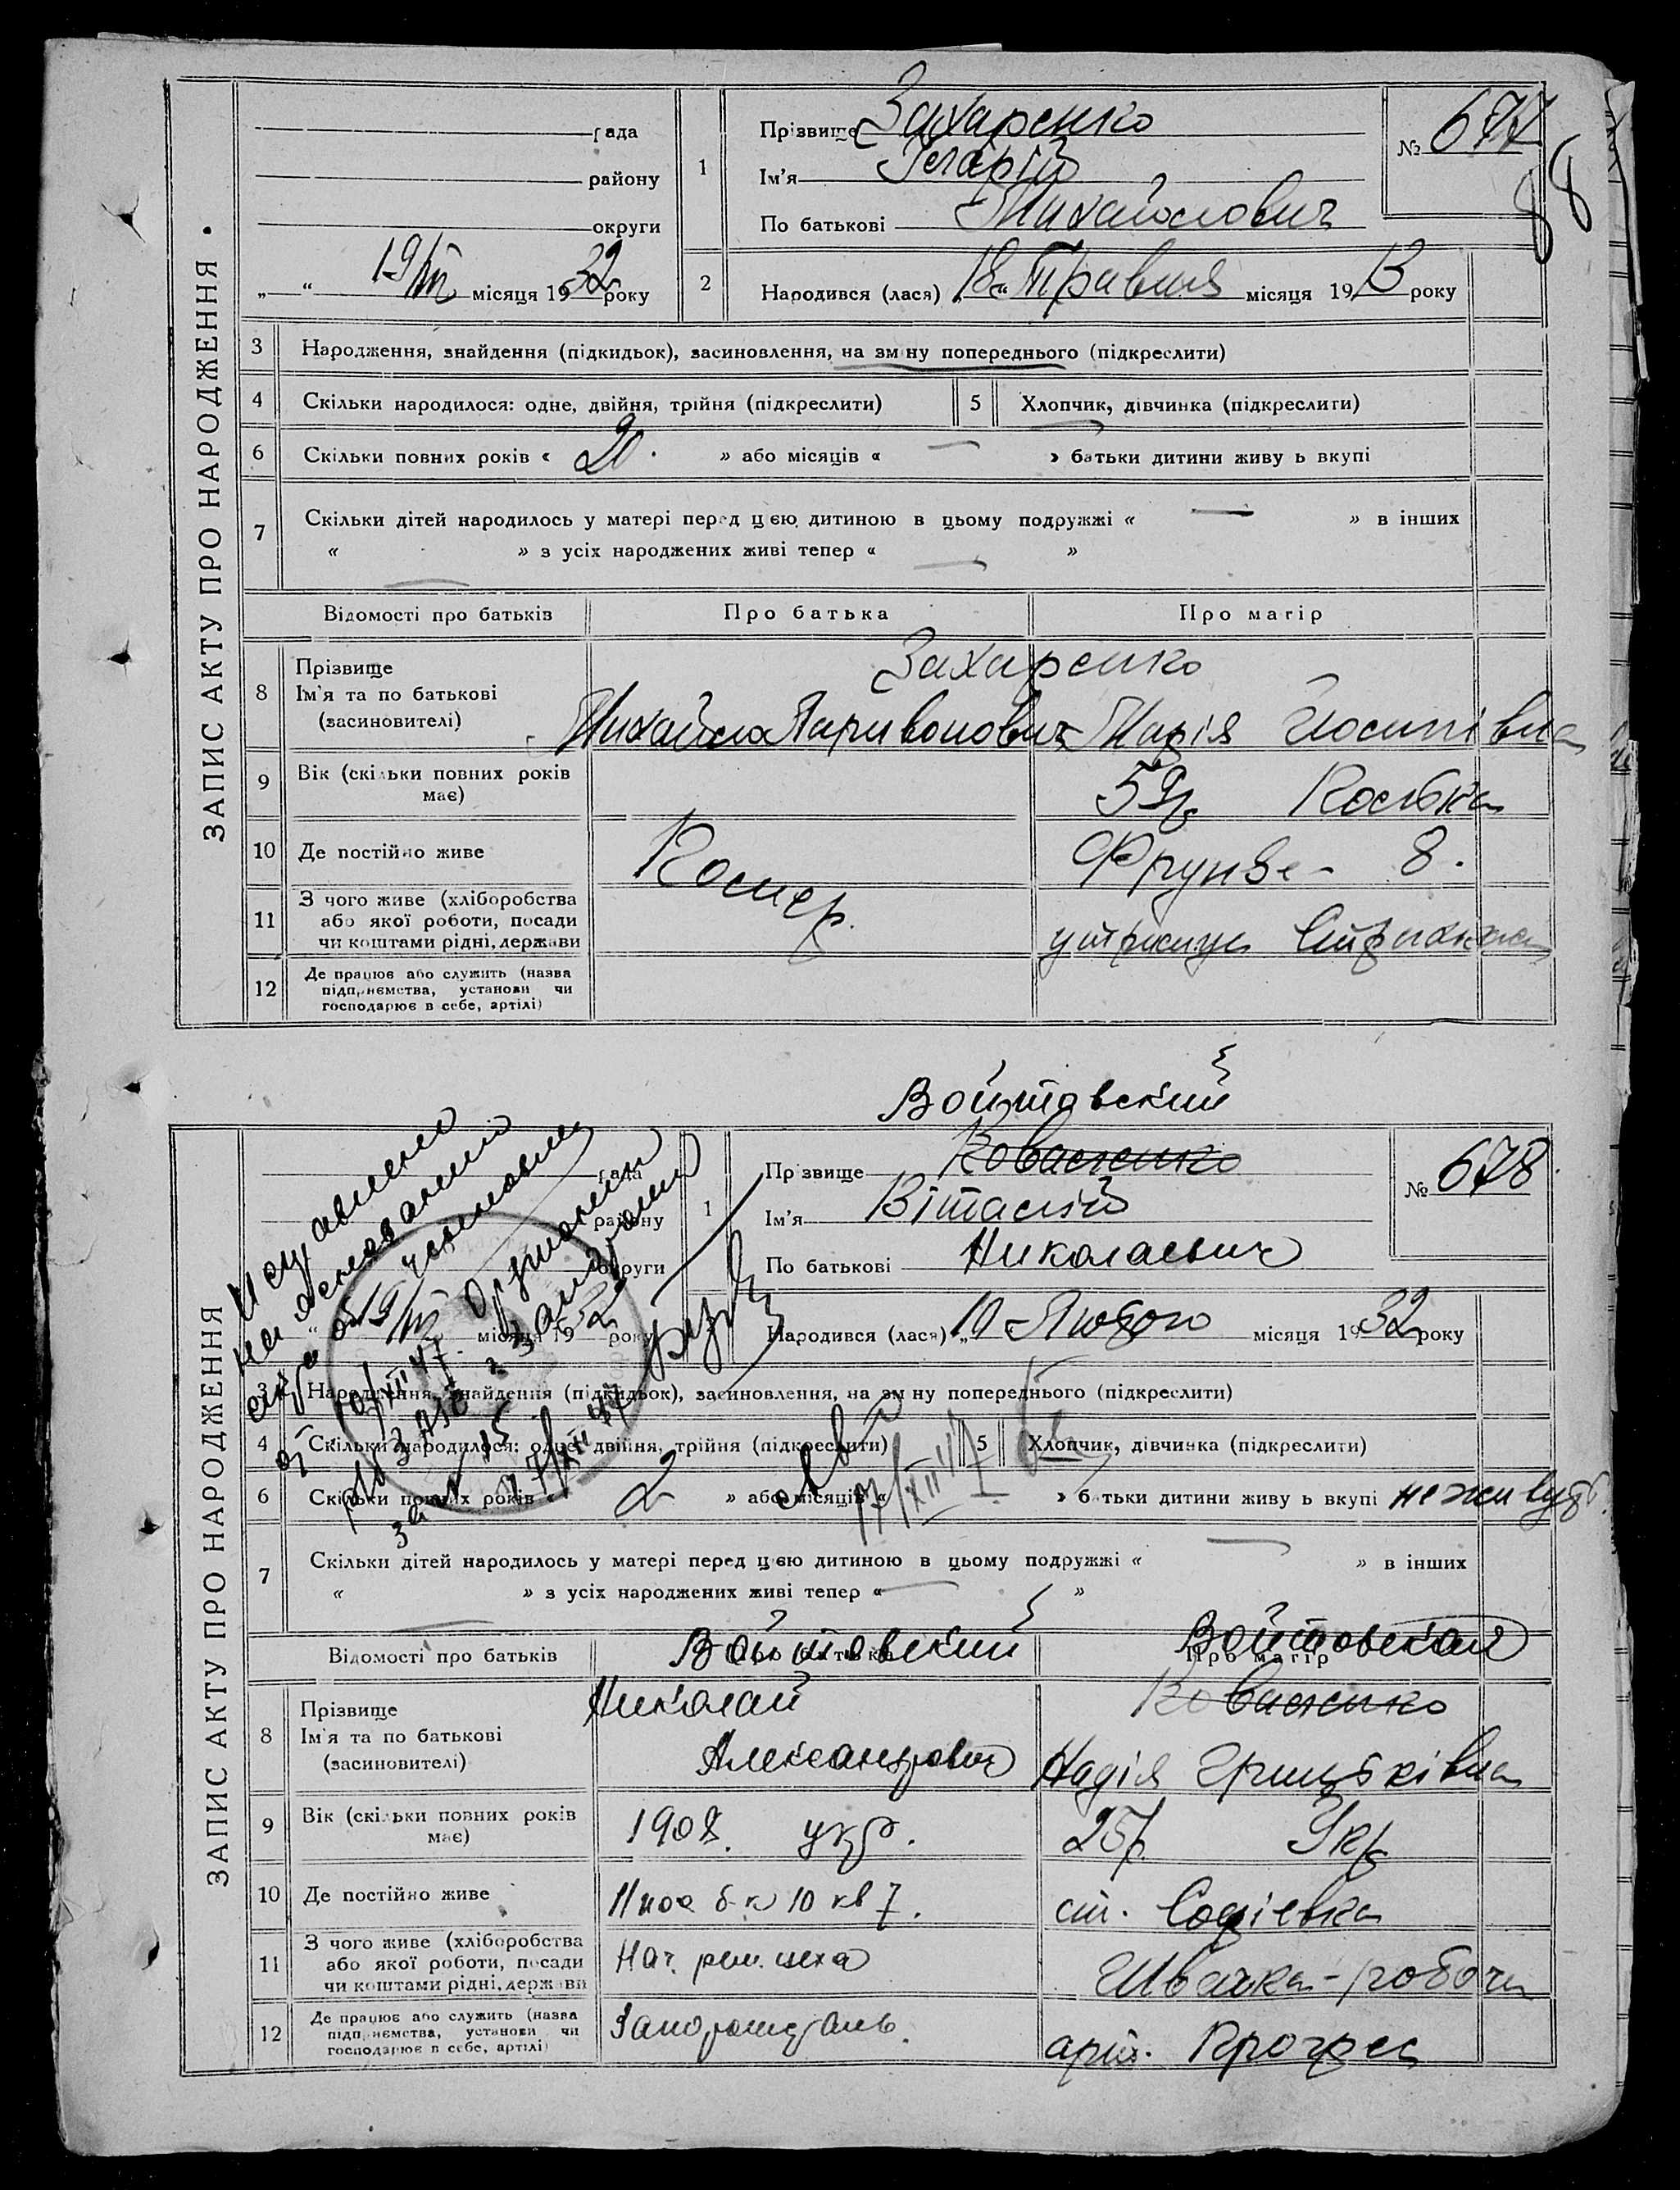 ЗАПИС АКТУ ПРО НАРОДЖЕННЯ
рада
району
округи
19/III місяця 1932 року
1
Прізвище Захаренко
Ім'я
По батькові Михайлович
№ 677
88
2
Народився (лася) „18“ Травня місяця 1913 року
3
Народження, знайдення (підкидьок), засиновлення, на зміну попереднього (підкреслити)
4
Скільки народилося: одне, двійня, трійня (підкреслити)
5
Хлопчик, дівчинка (підкреслити)
6
Скільки повних років « 20. » або місяців « — » батьки дитини живуть вкупі
7
Скільки дітей народилось у матері перед цією дитиною в цьому подружжі « — » в інших
« — » з усіх народжених живі тепер « — »
Відомості про батьків
Про батька
Про матір
8
Прізвище
Ім'я та по батькові
(засиновителі)
Захаренко
Михайло Паривонович
Марія Йосипівна
9
Вік (скільки повних років
має)
59р
10
Де постійно живе
Помер.
Фрунзе - 8.
11
З чого живе (хліборобства
або якої роботи, посади
чи коштами рідні, держави
12
Де працює або служить (назва
підприємства, установи чи
господарює в себе, артілі)
Войтовский
ЗАПИС АКТУ ПРО НАРОДЖЕННЯ
рада
району
округи
19/III місяця 1932 року
1
Прізвище Коваленко
Ім'я Віталій
По батькові Николаевич
№ 678
Народився (лася) „10 Лютого місяця 1932 року
3
Народження, знайдення (підкидьок), засиновлення, на зміну попереднього (підкреслити)
4
Скільки народилося: одне, двійня, трійня (підкреслити)
5
Хлопчик, дівчинка (підкреслити)
6
Скільки повних років « 2 » або місяців « » батьки дитини живуть вкупі не живуть.
17/XII 47
7
Скільки дітей народилось у матері перед цією дитиною в цьому подружжі « — » в інших
« — » з усіх народжених живі тепер « — »
Відомості про батьків
Войтовский
Про матір
Войтовская
8
Прізвище
Ім'я та по батькові
(засиновителі)
Николай
Александрович
Коваленко
Надія Грицьківна
9
Вік (скільки повних років
має)
1908. укр.
25р. Укр
10
Де постійно живе
10 кв 7.
ст. Софіевка
11
З чого живе (хліборобства
або якої роботи, посади
чи коштами рідні, держави
Нач. рем. цеха
Швачка - робоча
12
Де працює або служить (назва
підприємства, установи чи
господарює в себе, артілі)
Запорожсталь.
арт. Прогрес